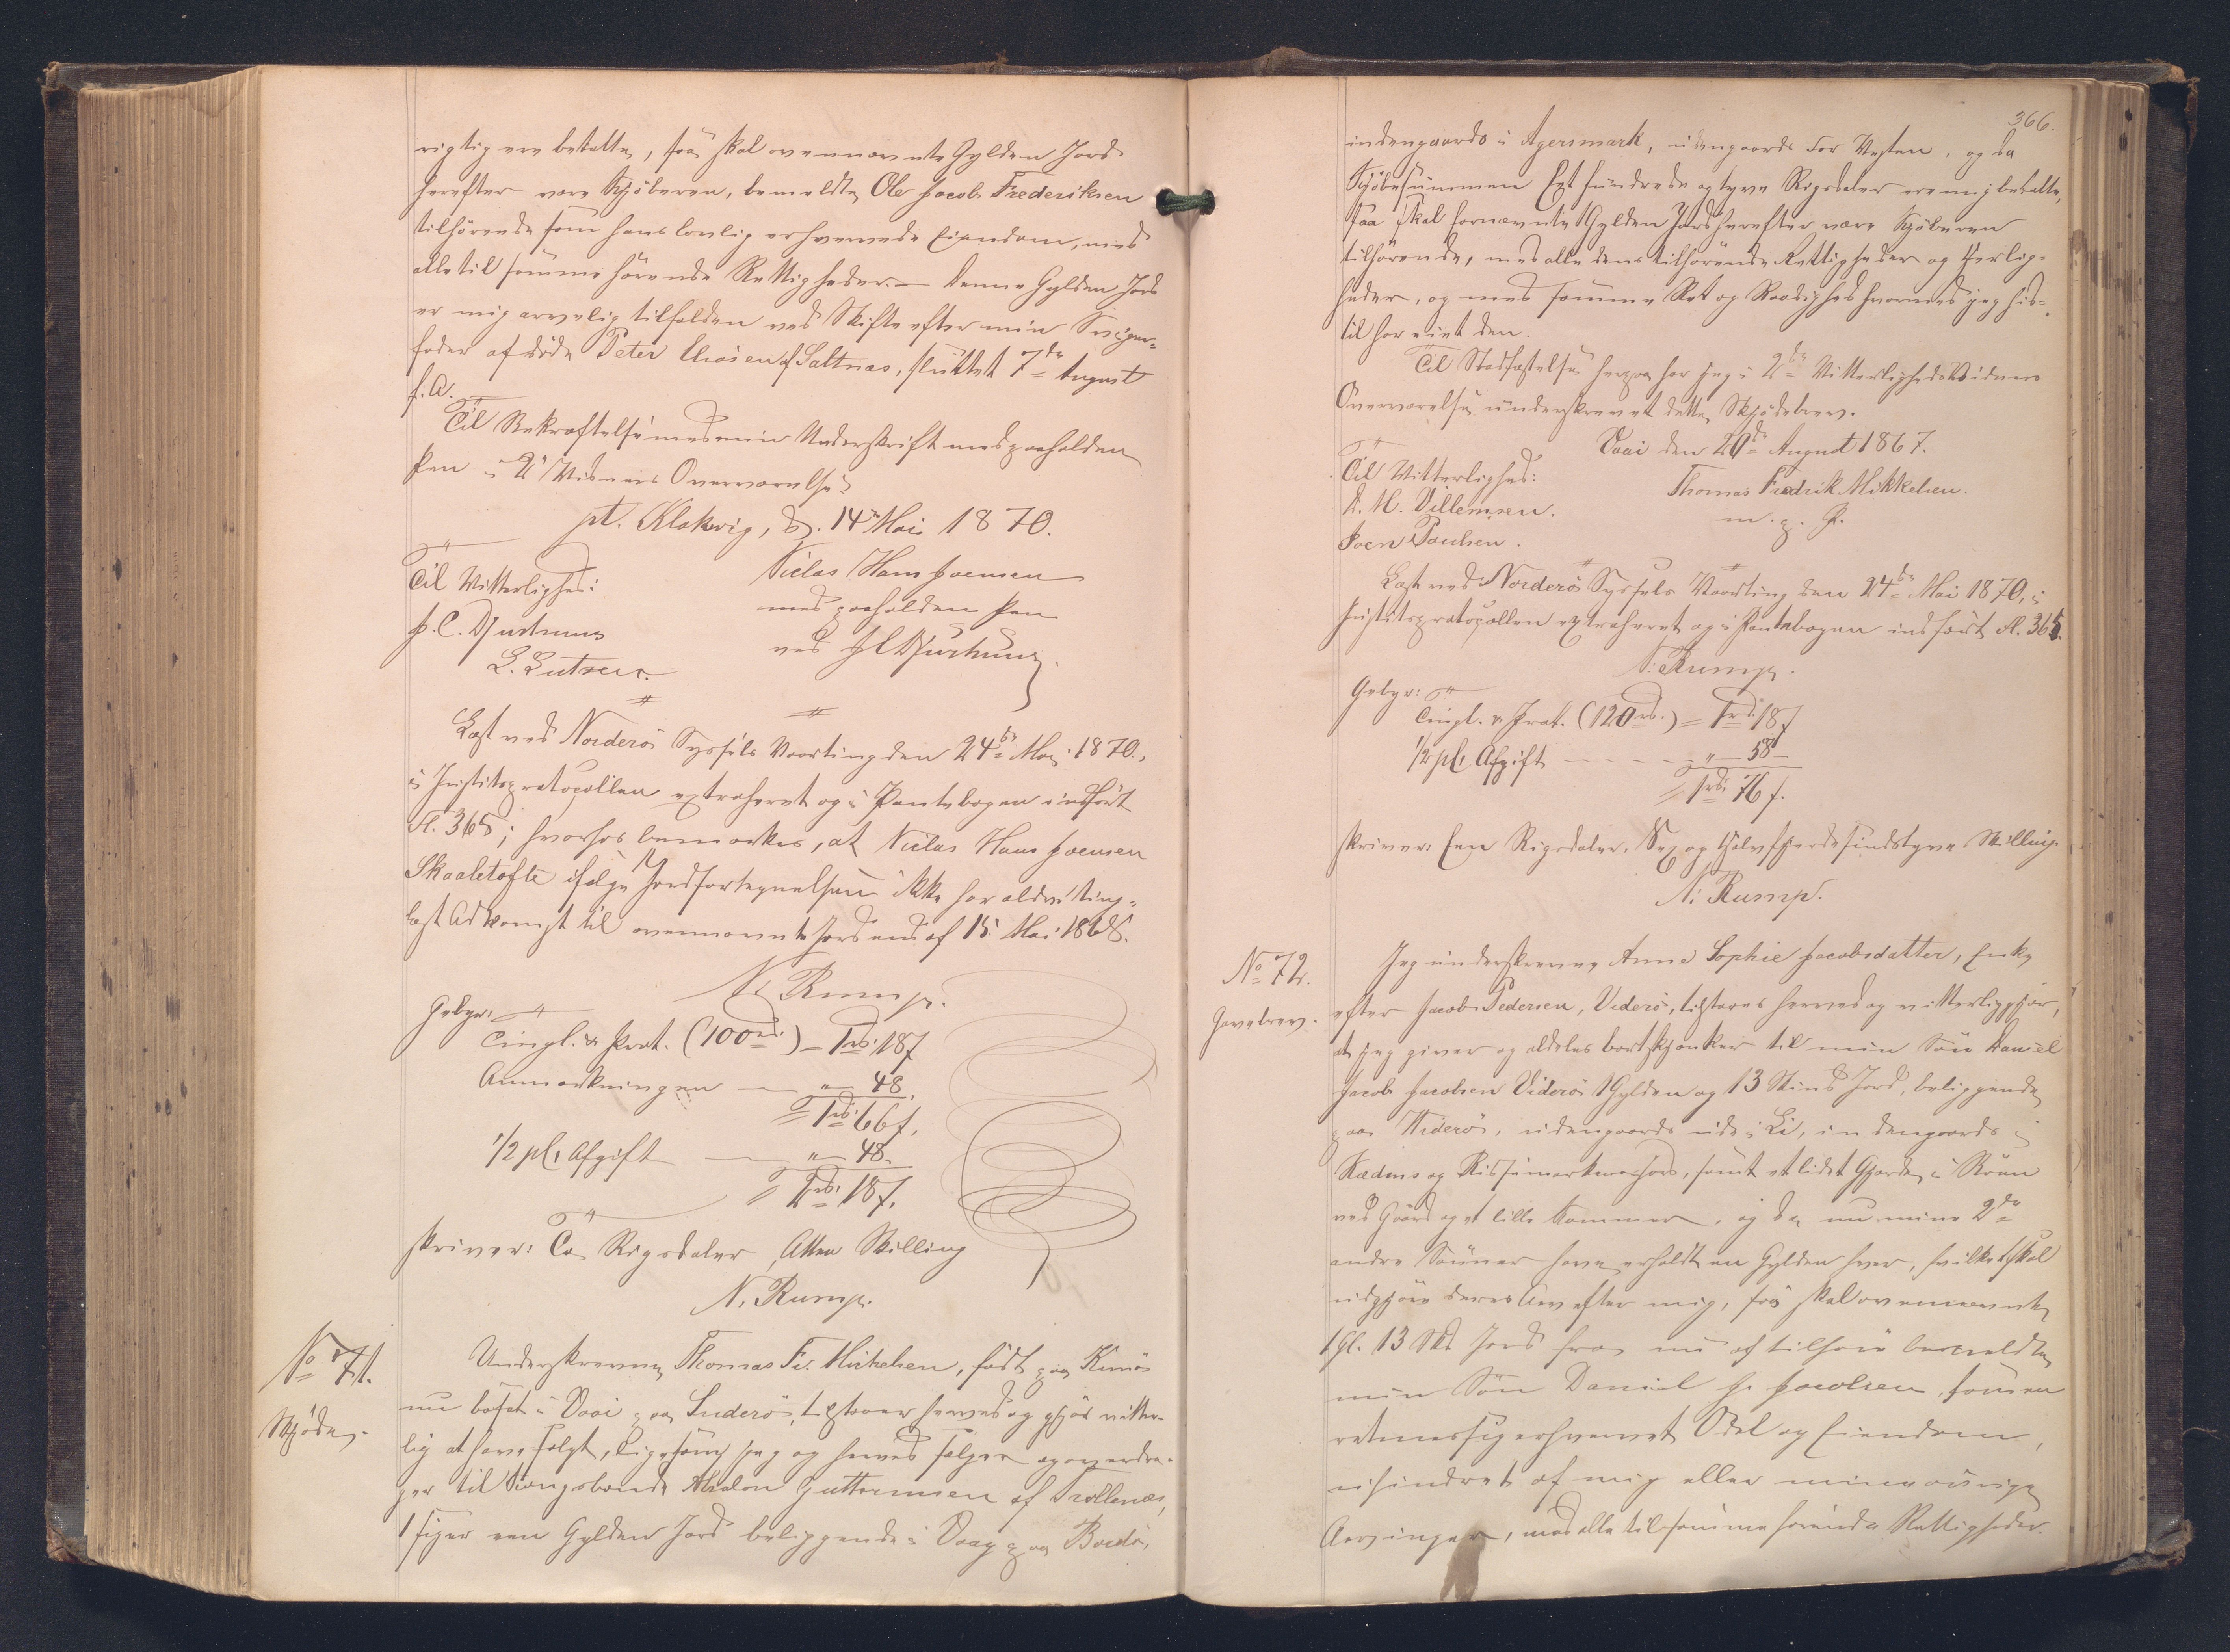 rigtig ere betalte, saa skal ovennævnte Gylden Jord
herefter være Kjöberen, bemeldte Ole Jacob Frederiksen
tilhörende som hans lovlig erhvervede Eiendom, med
alle til samme hörende Rettigheder. — Denne Gylden Jord
er mig arvelig tilfalden ved Skifte efter min Sviger-
fader afdöde Peter Clasen af Saltnæs, sluttet 7de August
f. A.
Til Bekræftelse med min Underskrift med paaholden
Pen i 2 Vidners Overværelse
pt. Klaksvig, d. 14 Mai 1870.
Til Vitterlighed:
Niclas Hans Joensen
med paaholden Pen
J. C. Djurhuus
ved J C Djurhuus
L. Lützen.
Læst ved Norderö Syssels Vaarting den 24de Mai 1870,
i Justitsprotocollen extraheret og i Pantebogen indfört
fl. 365; hvorhos bemærkes, at Niclas Hans Joensen
Skaaletofte ifölge Jordfortegnelsen ikke har ældre ting-
læst Adkomst til ovennævnte Jord end af 15 Mai 1868.
N. Rump.
Gebyr:
Tingl. & Prot. (100 rd.) = 1 rd. 18 s
Anmærkningen — " — 48
= 1 rd. 66 s.
1/2 pCt. Afgift — " — 48.
= 2 rd. 18 s.
skriver: To Rigsdaler, Atten Skilling
N. Rump.
No 71.
Skjöde.
Underskrevne Thomas Fr. Mikkelsen, födt paa Kunö
nu bosat i Vaai paa Suderö, tilstaaer herved og gjör vitter-
lig at have solgt, ligesom jeg og herved sælger og overdra-
ger til Kongsbonde Absalon Guttormsen af Trollenæs,
1 siger een Gylden Jord beliggende i Vaag paa Bordö,
366.
indengaards i Agersmark, udengaards For Vesten, og da
Kjöbesummen Et hundrede og tyve Rigsdaler ere mig betalte,
saa skal fornævnte 1 Gylden Jord herefter være Kjöberen
tilhörende, med alle dens tilhörende Rettigheder og Herlig-
heder, og med samme Ret og Raadighed hvormed jeg hid-
til har eiet den.
Til Stadfæstelse herpaa har jeg i 2de Vitterligheds Vidners
Overværelse underskrevet dette Skjödebrev.
Vaai den 20de August 1867.
Til Vitterlighed:
Thomas Fredrik Mikkelsen.
D. M. Villemsen.
m. p. P.
Joen Poulsen.
Læst ved Norderö Syssels Vaarting den 24de Mai 1870, i
Justitsprotocollen extraheret og i Pantebogen indfört fl. 365.
N. Rump.
Gebyr:
Tingl. & Prot. (120 rd.) = 1 rd. 18 s
1/2 pCt. Afgift - - - - - " — 58 —
= 1 rd. 76 s.
skriver: Een Rigsdaler, Sex og Halvfjerdsindstyve Skilling.
N. Rump.
No 72.
Gavebrev.
Jeg underskrevne Anne Sophie Jacobsdatter, Enke
efter Jacob Pedersen, Viderö, tilstaaer herved og vitterliggjör,
at jeg giver og aldeles bortskjænker til min Sön Daniel
Jacob Jacobsen Viderö 1 Gylden og 13 Skinds Jord, beliggende
paa Viderö, udengaards ude i Li, indengaards i
samt et lidet Gjærde i
ved Gaard og et lille Kammer, og da nu mine 2de
andre Sönner have erholdt en Gylden hver, hvilket skal
udgjöre deres Arv efter mig, saa skal ovennævnte
1 Gl. 13 Skd. Jord fra nu af tilhöre bemeldte
min Sön Daniel J. Jacobsen, som en
retmæssig erhvervet Odel og Eiendom,
uhindret af mig eller mine övrige
Arvinger, med alle til samme hörende Rettigheder.